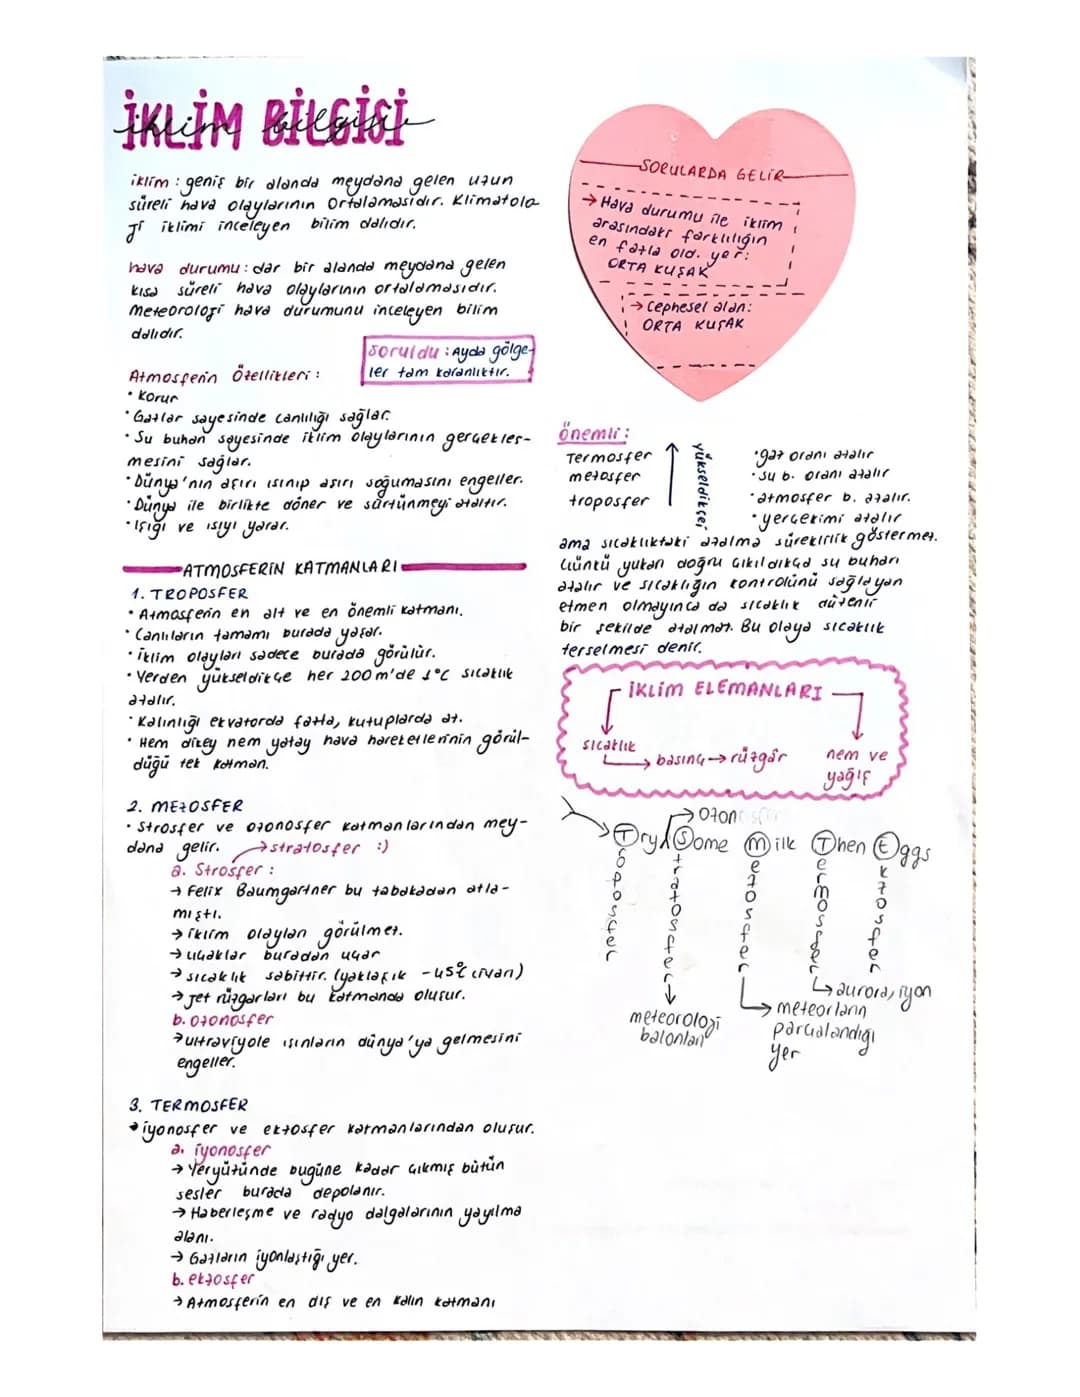 İKLİM BİLGİSİ
iklim bilgisi
iklim : geniş bir alanda meydana gelen uzun
süreli hava olaylarının ortalamasıdır. Klimatolo
ji iklimi inceleyen bilim dalıdır.
hava durumu : dar bir alanda meydana gelen
kısa süreli hava olaylarının ortalamasıdır.
Meteoroloji hava durumunu inceleyen bilim
dalıdır.
soruldu : Ayda gölge-
ler tam karanlıktır.
Atmosferin Özellikleri :
• Korur
• Gazlar sayesinde canlılığı sağlar.
• Su buharı sayesinde iklim olaylarının gerçekleş-
mesini sağlar.
• Dünya'nın aşırı ısınıp aşırı soğumasını engeller.
• Dünya ile birlikte döner ve sürtünmeyi azaltır.
• Işığı ve ısıyı yarar.
ATMOSFERİN KATMANLARI
1. TROPOSFER
• Atmosferin en alt ve en önemli katmanı.
• Canlıların tamamı burada yaşar.
• İklim olayları sadece burada görülür.
• Yerden yükseldikçe her 200 m'de 1°C sıcaklık
azalır.
• Kalınlığı ekvatorda fazla, kutuplarda az.
• Hem dikey hem yatay hava hareketlerinin görül-
düğü tek katman.
2. MEZOSFER
• Strosfer ve ozonosfer katmanlarından mey-
dana gelir. → stratosfer :)
a. Strosfer :
→ Felix Baumgartner bu tabakadan atla-
mıştı.
→ iklim olayları görülmez.
→ uçaklar buradan uçar
→ sıcaklık sabittir. (yaklaşık -45°C civarı)
→ Jet rüzgarları bu katmanda oluşur.
b. ozonosfer
→ ultraviyole ışınların dünya'ya gelmesini
engeller.
3. TERMOSFER
• iyonosfer ve ekzosfer katmanlarından oluşur.
a. iyonosfer
→ Yeryüzünde bugüne kadar çıkmış bütün
sesler burada depolanır.
→ Haberleşme ve radyo dalgalarının yayılma
alanı.
→ Gazların iyonlaştığı yer.
b. ekzosfer
→ Atmosferin en dış ve en kalın katmanı
SORULARDA GELİR
→ Hava durumu ile iklim
arasındaki farklılığın
en fazla old. yer:
ORTA KUŞAK
→ Cephesel alan:
ORTA KUŞAK
önemli :
Termosfer
mezosfer
troposfer
yükseldikçe;
• gaz oranı azalır
• su b. oranı azalır
• atmosfer b. azalır.
• yerçekimi azalır
ama sıcaklıktaki azalma süreklilik göstermez.
Çünkü yukarı doğru çıkıldıkça su buharı
azalır ve sıcaklığın kontrolünü sağlayan
etmen olmayınca da sıcaklık düzenli
bir şekilde azalmaz. Bu olaya sıcaklık
terselmesi denir.
İKLİM ELEMANLARI
sıcaklık
basınç → rüzgâr
nem ve
yağış
→ ozonosfer
Try Some Milk Then Eggs
Troposfer
Stratosfer
Mezosfer
Termosfer
Ekzosfer
aurora, iyon
meteoroloji
balonları
meteorların
parçalandığı
yer